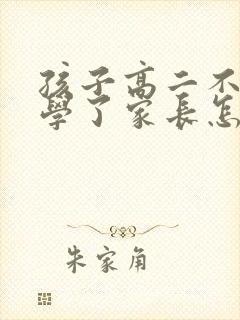 孩子高二不
學了家長怎
朱家角